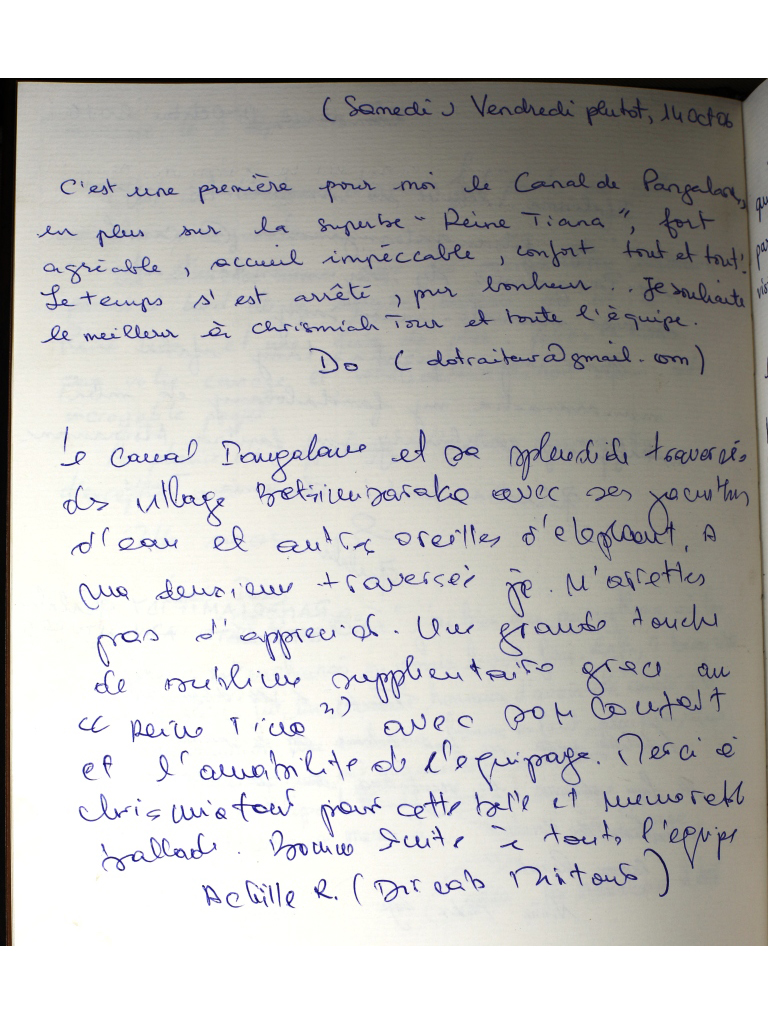 (Samedi) Vendredi plutot, 14 Oct 06
C'est une première pour moi le Canal de Pangalanes,
en plus sur la superbe "Reine Tiana", fort
agréable, accueil impéccable, confort tout et tout!
Le temps s'est arrêté, pur bonheur... Je souhaite
le meilleur à Chrismiah Tour et toute l'équipe.
Do (dotraiteur@gmail.com)
Le canal Pangalane et sa splendide traversée
des village Betsimisaraka avec ses jacinthes
d'eau et autres oreilles d'elephant. A
ma deuxieme traversée je n'arrettes
pas d'apprecier. Une grande touche
de sublime supplentaire grace au
"Reine Tina" avec son confort
et l'amabilite de l'equipage. Merci à
chrismiatour pour cette belle et memorable
ballade. Bonne suite à toute l'equipe
Achille R. (Dircab Mintour)
qu
pa
vis